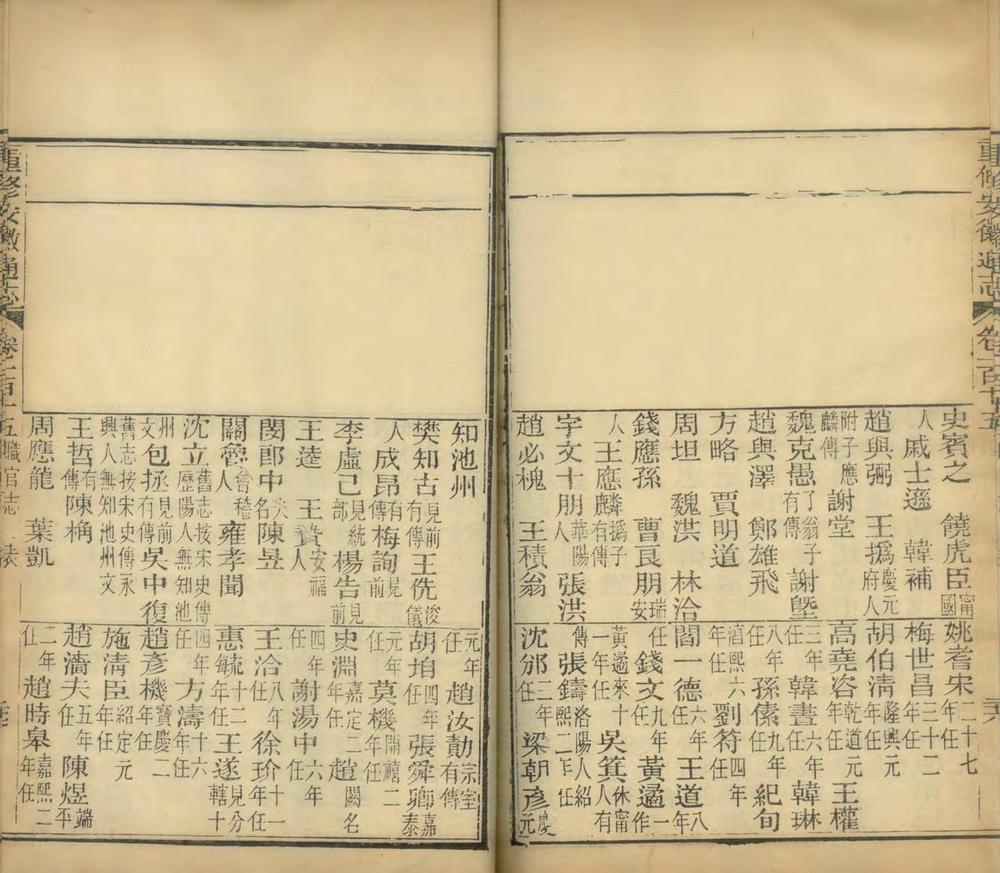 重修安徽通志 卷一百十五
史賓之 饒虎臣 甯國
人 戚士遜 韓補
趙與弼 王撝 慶元府人
附子應麟傳 謝堂
魏克愚 了翁子有傳 謝塈
趙與澤 鄭雄飛
方略 賈明道
周坦 魏洪 林洽
錢應孫 曹良朋 瑞安
人 王應麟 撝子有傳
宇文十朋 華陽人 張洪
趙必槐 王積翁
姚耆宋 二十七年任
梅世昌 三十二年任
胡伯清 隆興元年任
高堯咨 乾道元年任 王權
三年任 韓晝 六年任 韓琳
八年任 孫傃 九年任 紀旬
淳熙六年任 劉符 四年任
閻一德 六年任 王道 八年
任 錢文 九年任 黃遹 一作
黃遹來十一年任 吳箕 休甯人有
傳 張鑄 洛陽人紹熙二年任
沈邠 三年任 梁朝彥 慶元
知池州
樊知古 見前有傳 王侁 浚儀
人 成昂 有傳 梅詢 見前
李虛己 見統部 楊告 見前
王逵 王贄 安福人
閔郎中 失名 陳昱
關 會稽人 雍孝聞
沈立 舊志按宋史傳歷陽人無知池
州文 包拯 見前有傳 吳中復
舊志按宋史傳永興人無知池州文
王哲 有傳 陳桷
周應龍 葉凱
元年任 趙汝勣 宗室有傳
胡垍 四年任 張舜卿 嘉泰
元年任 莫機 開禧二年任
史淵 嘉定二年任 趙 闕名
四年任 謝湯中 六年任
王洽 八年任 徐玠 十一年任
惠毓 十二年任 王遂 見分轄十
四年任 方濤 十六年任
趙彥機 寶慶二年任
施清臣 紹定元年任
趙濤夫 五年任 陳煜 端平
二年任 趙時皋 嘉熙二年任
重修安徽通志 卷一百十五 職官志 表